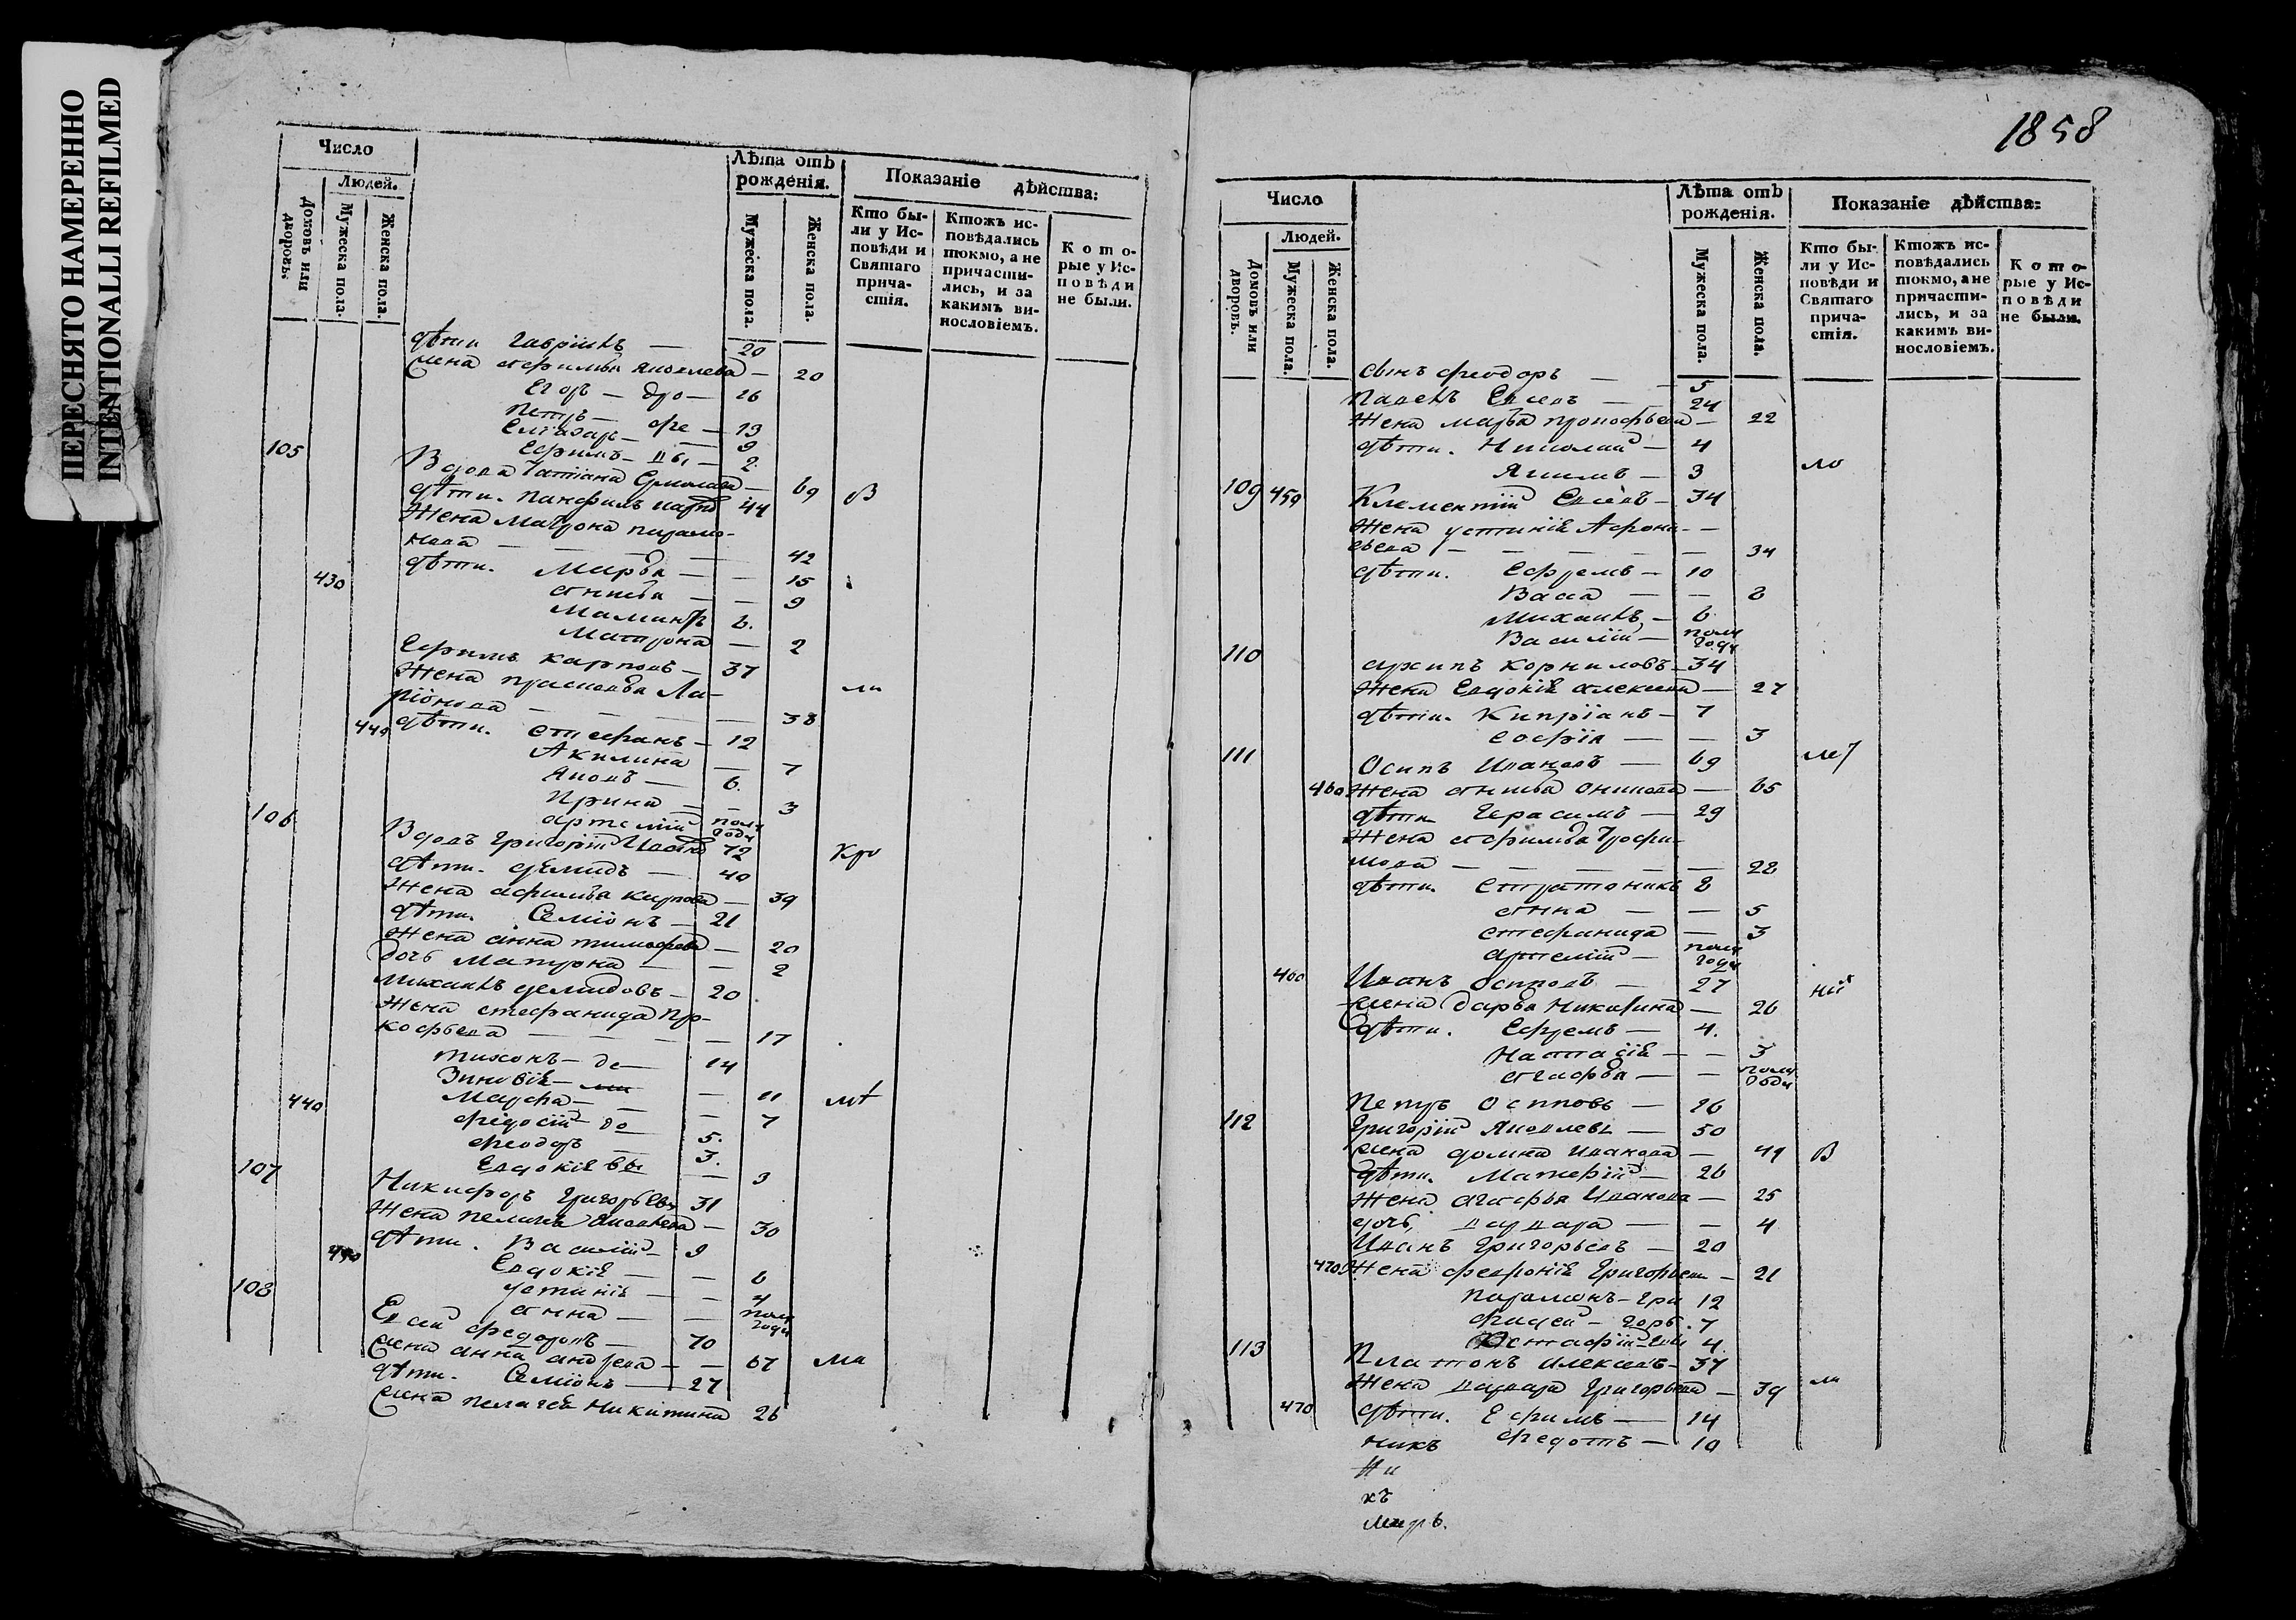 ПЕРЕСНЯТО НАМЕРЕННО
INTENTIONALLI REFILMED
Число
Людей.
Домовъ или дворовъ.
Мужеска пола.
Женска пола.
Лѣта отъ рожденія.
Мужеска пола.
Женска пола.
Показаніе дѣйства:
Кто бы-
ли у Ис-
повѣди и
Святаго
прича-
стія.
Ктожъ ис-
повѣдались
токмо, а не
причасти-
лись, и за
какимъ ви-
нословіемъ.
Кото-
рые у Ис-
повѣди
не были.
дѣти Гавріилъ — 20
Жена Афимья Яковлева — 20
Егоръ — 16
Петръ — 13
Елиазаръ — 9
Ефимъ — 2
105 Вдова Татіана Ермолаева — 69 в
дѣти. Панфилъ 44
Жена Матрона Парамо-
нова — 42
дѣти. Марья — 15
430 Анисья — 9
6.
Матрона — 2
Ефимъ Карповъ — 37
Жена Прасковья Ла- ли
ріонова — 38
440 дѣти. Стефанъ — 12
Акилина — 7
Яковъ — 6.
Ирина — 3
Артемій полъ года
106 Вдовъ Григорій 72 кро
дѣти. Демидъ — 40
Жена Афимья Карпова — 39
дѣти. Семіонъ — 21
Жена Анна Тимофеева — 20
дочь Матрона — 2
Михаилъ Демидовъ — 20
Жена Стефанида Про-
кофьева — 17
Тихонъ — де — 14
Зиновія — 11
440 Марфа — 7
Феодосій — до 5.
Феодоръ — 3.
Евдокія 3
107 Никифоръ Григорьевъ 31
Жена 30
дѣти. Василій — 9
450 Евдокія — 6
Устинія — 4
Анна — полъ года
108 Евсей Федоровъ — 70
Жена Анна Андреева — 67 ма
дѣти. Семіонъ — 27
Жена Пелагея Никитина 26
1858
Число
Людей.
Домовъ или дворовъ.
Мужеска пола.
Женска пола.
Лѣта отъ рожденія.
Мужеска пола.
Женска пола.
Показаніе дѣйства:
Кто бы-
ли у Ис-
повѣди и
Святаго
прича-
стія.
Ктожъ ис-
повѣдались
токмо, а не
причасти-
лись, и за
какимъ ви-
нословіемъ.
Кото-
рые у Ис-
повѣди
не были.
сынъ Феодоръ — 5
Павелъ Евсевъ — 24
Жена Марья Прокофьева — 22
дѣти. Николай — 4
Якимъ — 3 ло
109 450 Клементій Евсевъ — 34
Жена Устинія Афона-
сьева — 34
дѣти. Ефремъ — 10
Васса — 8
Михаилъ — 6
Василій — полъ года
110 Архипъ Корниловъ — 34
Жена Евдокія Алексеева — 27
дѣти. Кипріанъ — 7
Софія — 3
111 Осипъ Ивановъ — 69
460 Жена Анисья 65
дѣти Герасимъ — 29
Жена Афимья Трофи-
мова — 28
дѣти. Стратоникъ 8
Анна — 5
Стефанида — 3
Артемій — полъ года
460 Иванъ Осиповъ — 27 ній
Жена Дарья Никитина — 26
дѣти. Ефремъ — 4.
Настасія — 3
Агафья — полъ года
Петръ Осиповъ — 16
112 Григорій Яковлевъ — 50
Жена Домна Иванова — 49 в
дѣти. 26
Жена Агафья Иванова — 25
дочь Варвара — 4
Иванъ Григорьевъ — 20
470 Жена Февронія Григорьева — 21
Парамонъ — Гри 12
Фадей — горь. 7
Остафій 4.
113 Платонъ Алексеевъ — 37
Жена Варвара Григорьева — 39 ли
470 дѣти. Ефимъ — 14
Федотъ — 10
никъ
Ни
къ